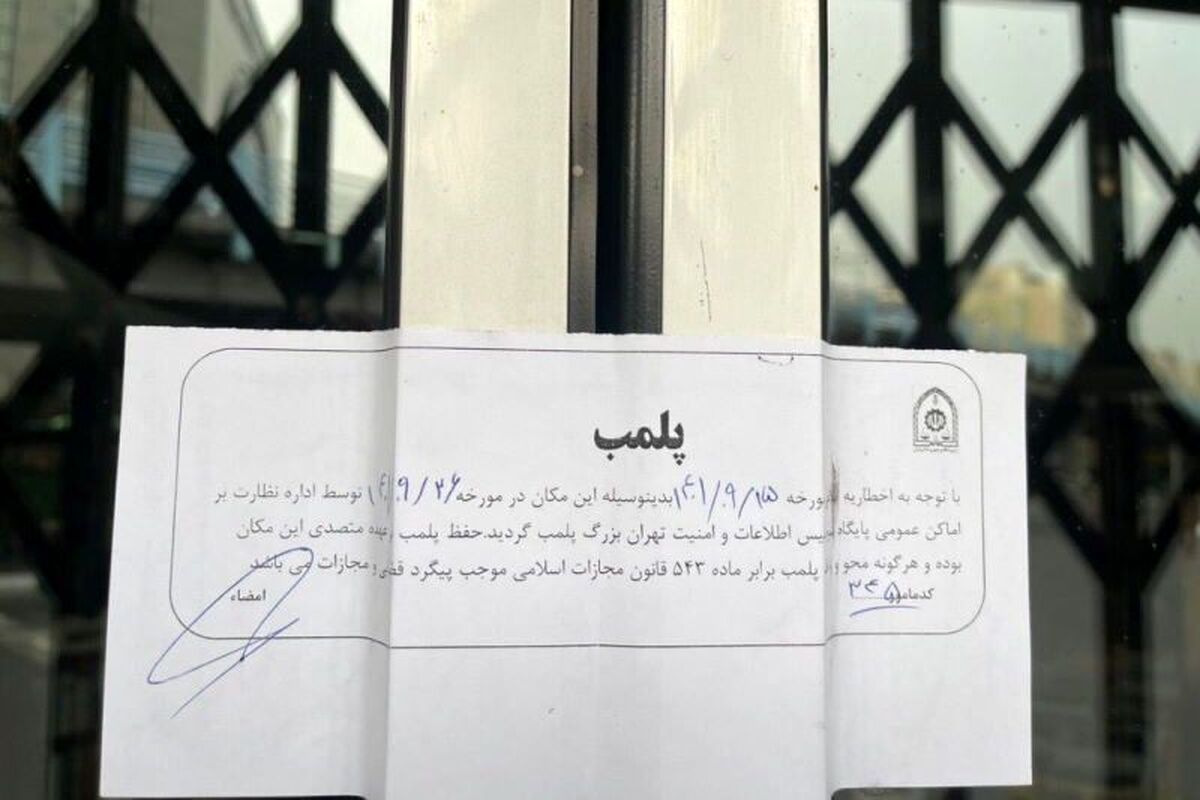 پلمب
با توجه به اخطاریه مورخه ۱۴۰۱/۰۹/۱۵ بدینوسیله این مکان در مورخه ۱۴۰۱/۹/۲۶ توسط اداره نظارت بر
اماکن عمومی پایگاه پلیس اطلاعات و امنیت تهران بزرگ پلمب گردید.حفظ پلمب بعهده متصدی این مکان
بوده و هرگونه محو و پلمب برابر ماده ۵۴۳ قانون مجازات اسلامی موجب پیگرد و مجازات می باشد
کدمامور ۳۴۵
امضاء